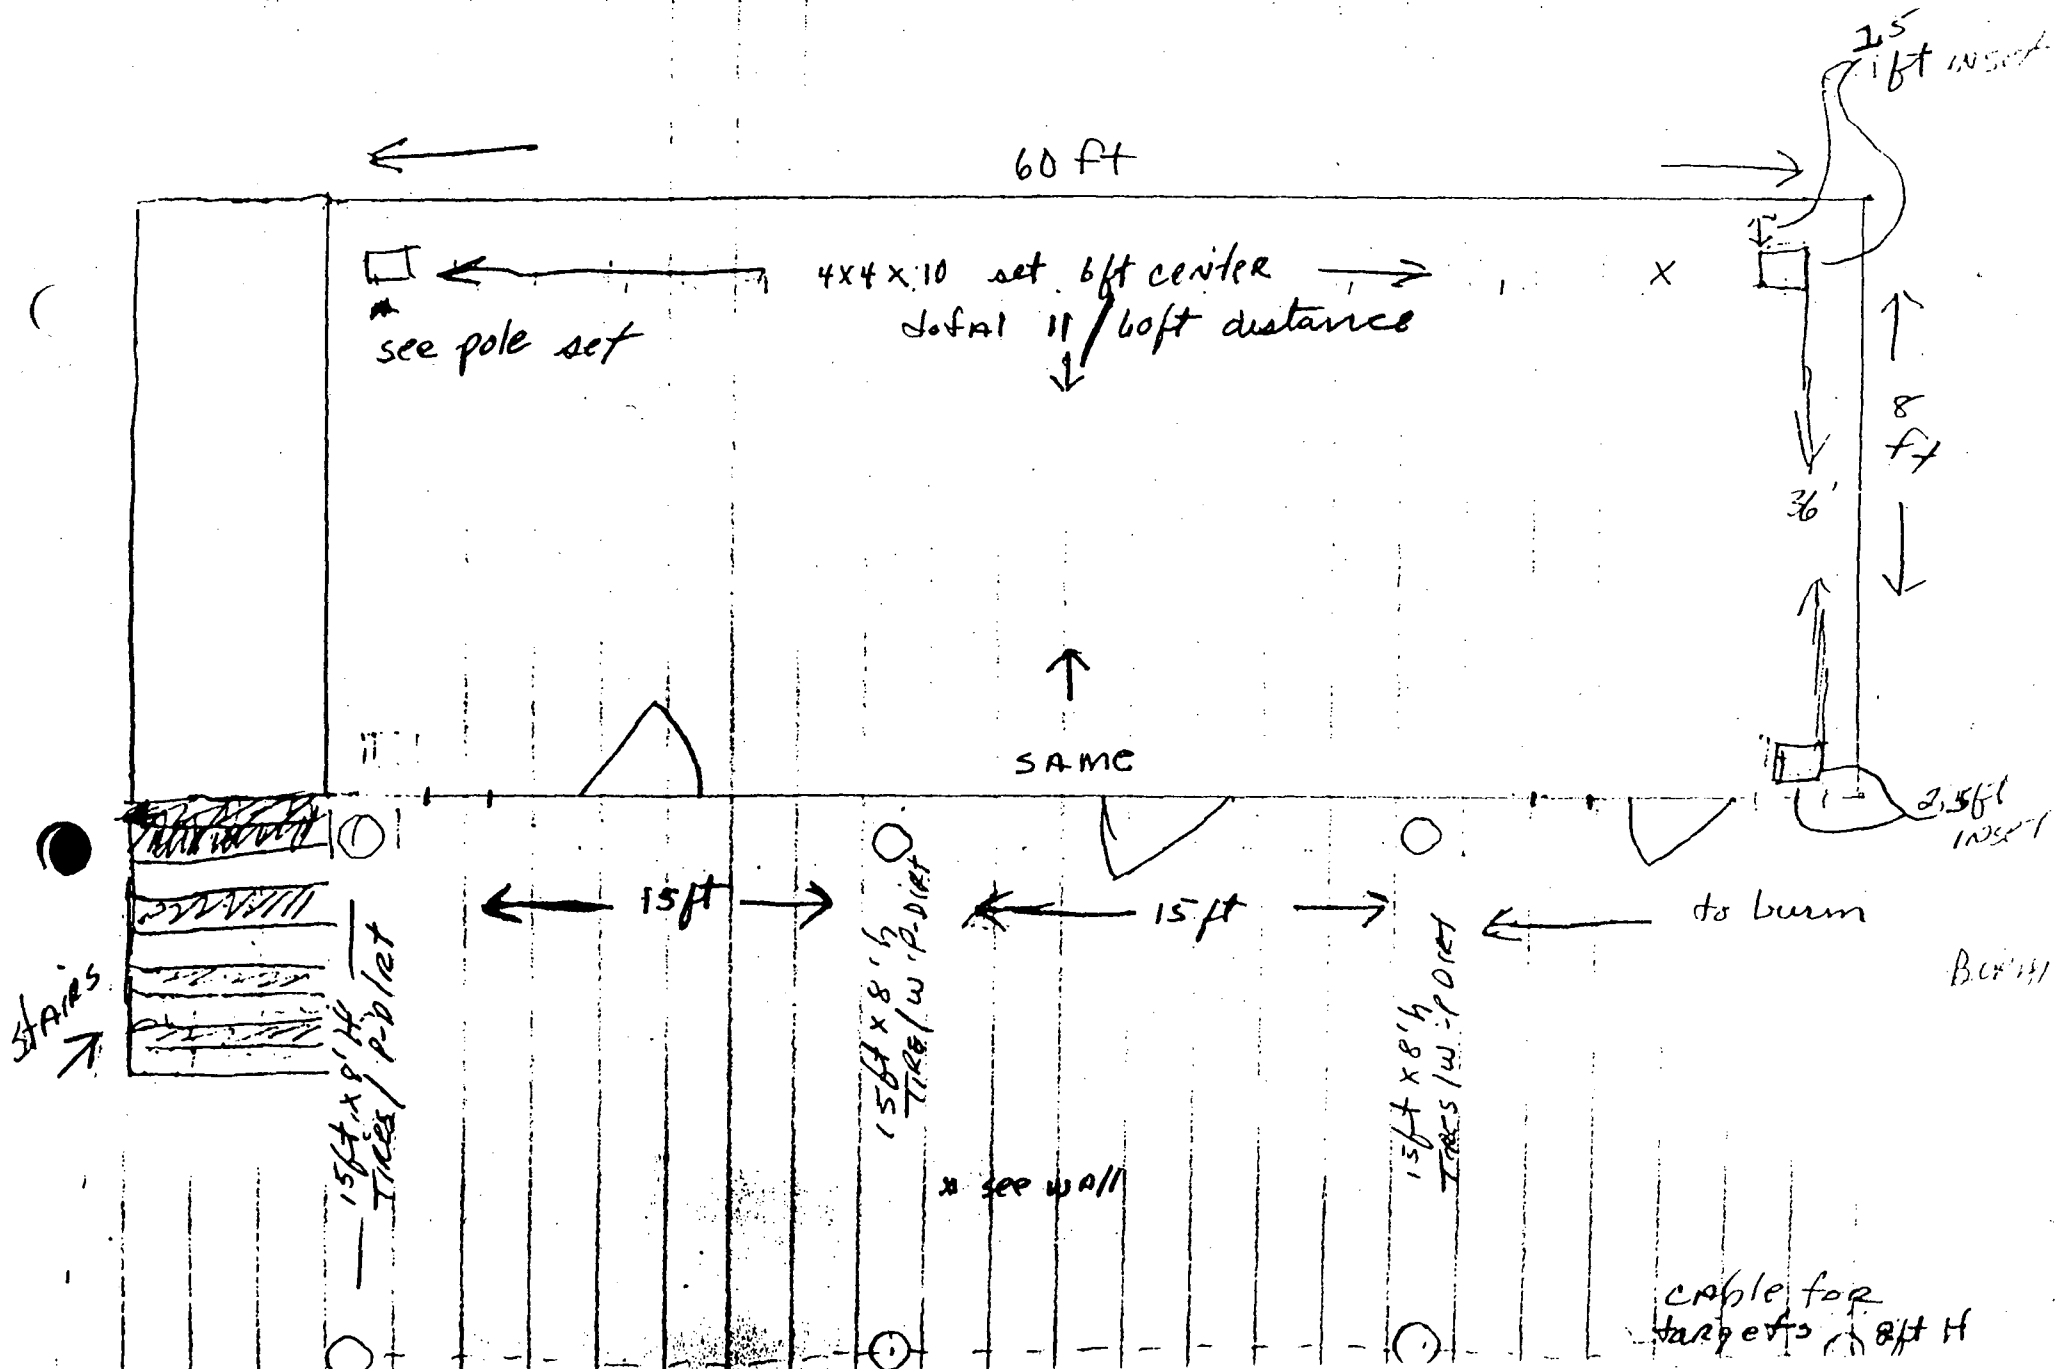 60 ft
4x4x10 set 6ft center
total 11 / 60ft distance
x
see pole set
8
ft
36'
SAME
2.5ft
INSET
15ft
15ft
to burm
STAIRS
15ft x 8' H
TIRES / P-DIRT
15ft x 8' h
TIRE / W P-DIRT
15ft x 8' h
TIRES / W-P DIRT
* see wall
cable for
targets 8ft H